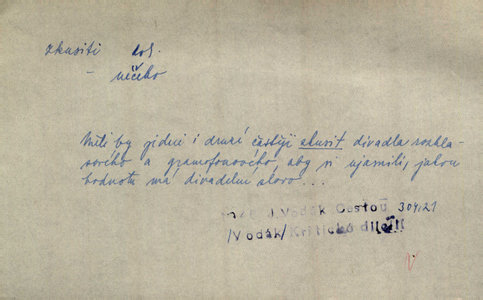 zkusiti dok.
– něčeho
Měli by jedni i druzí častěji zkusit divadla rozhla-
sového a gramofonového, aby si ujasnili, jakou
hodnotu má divadelní slovo...
J. Vodák Cestou 304121
/Vodák/Kritické dílo/II